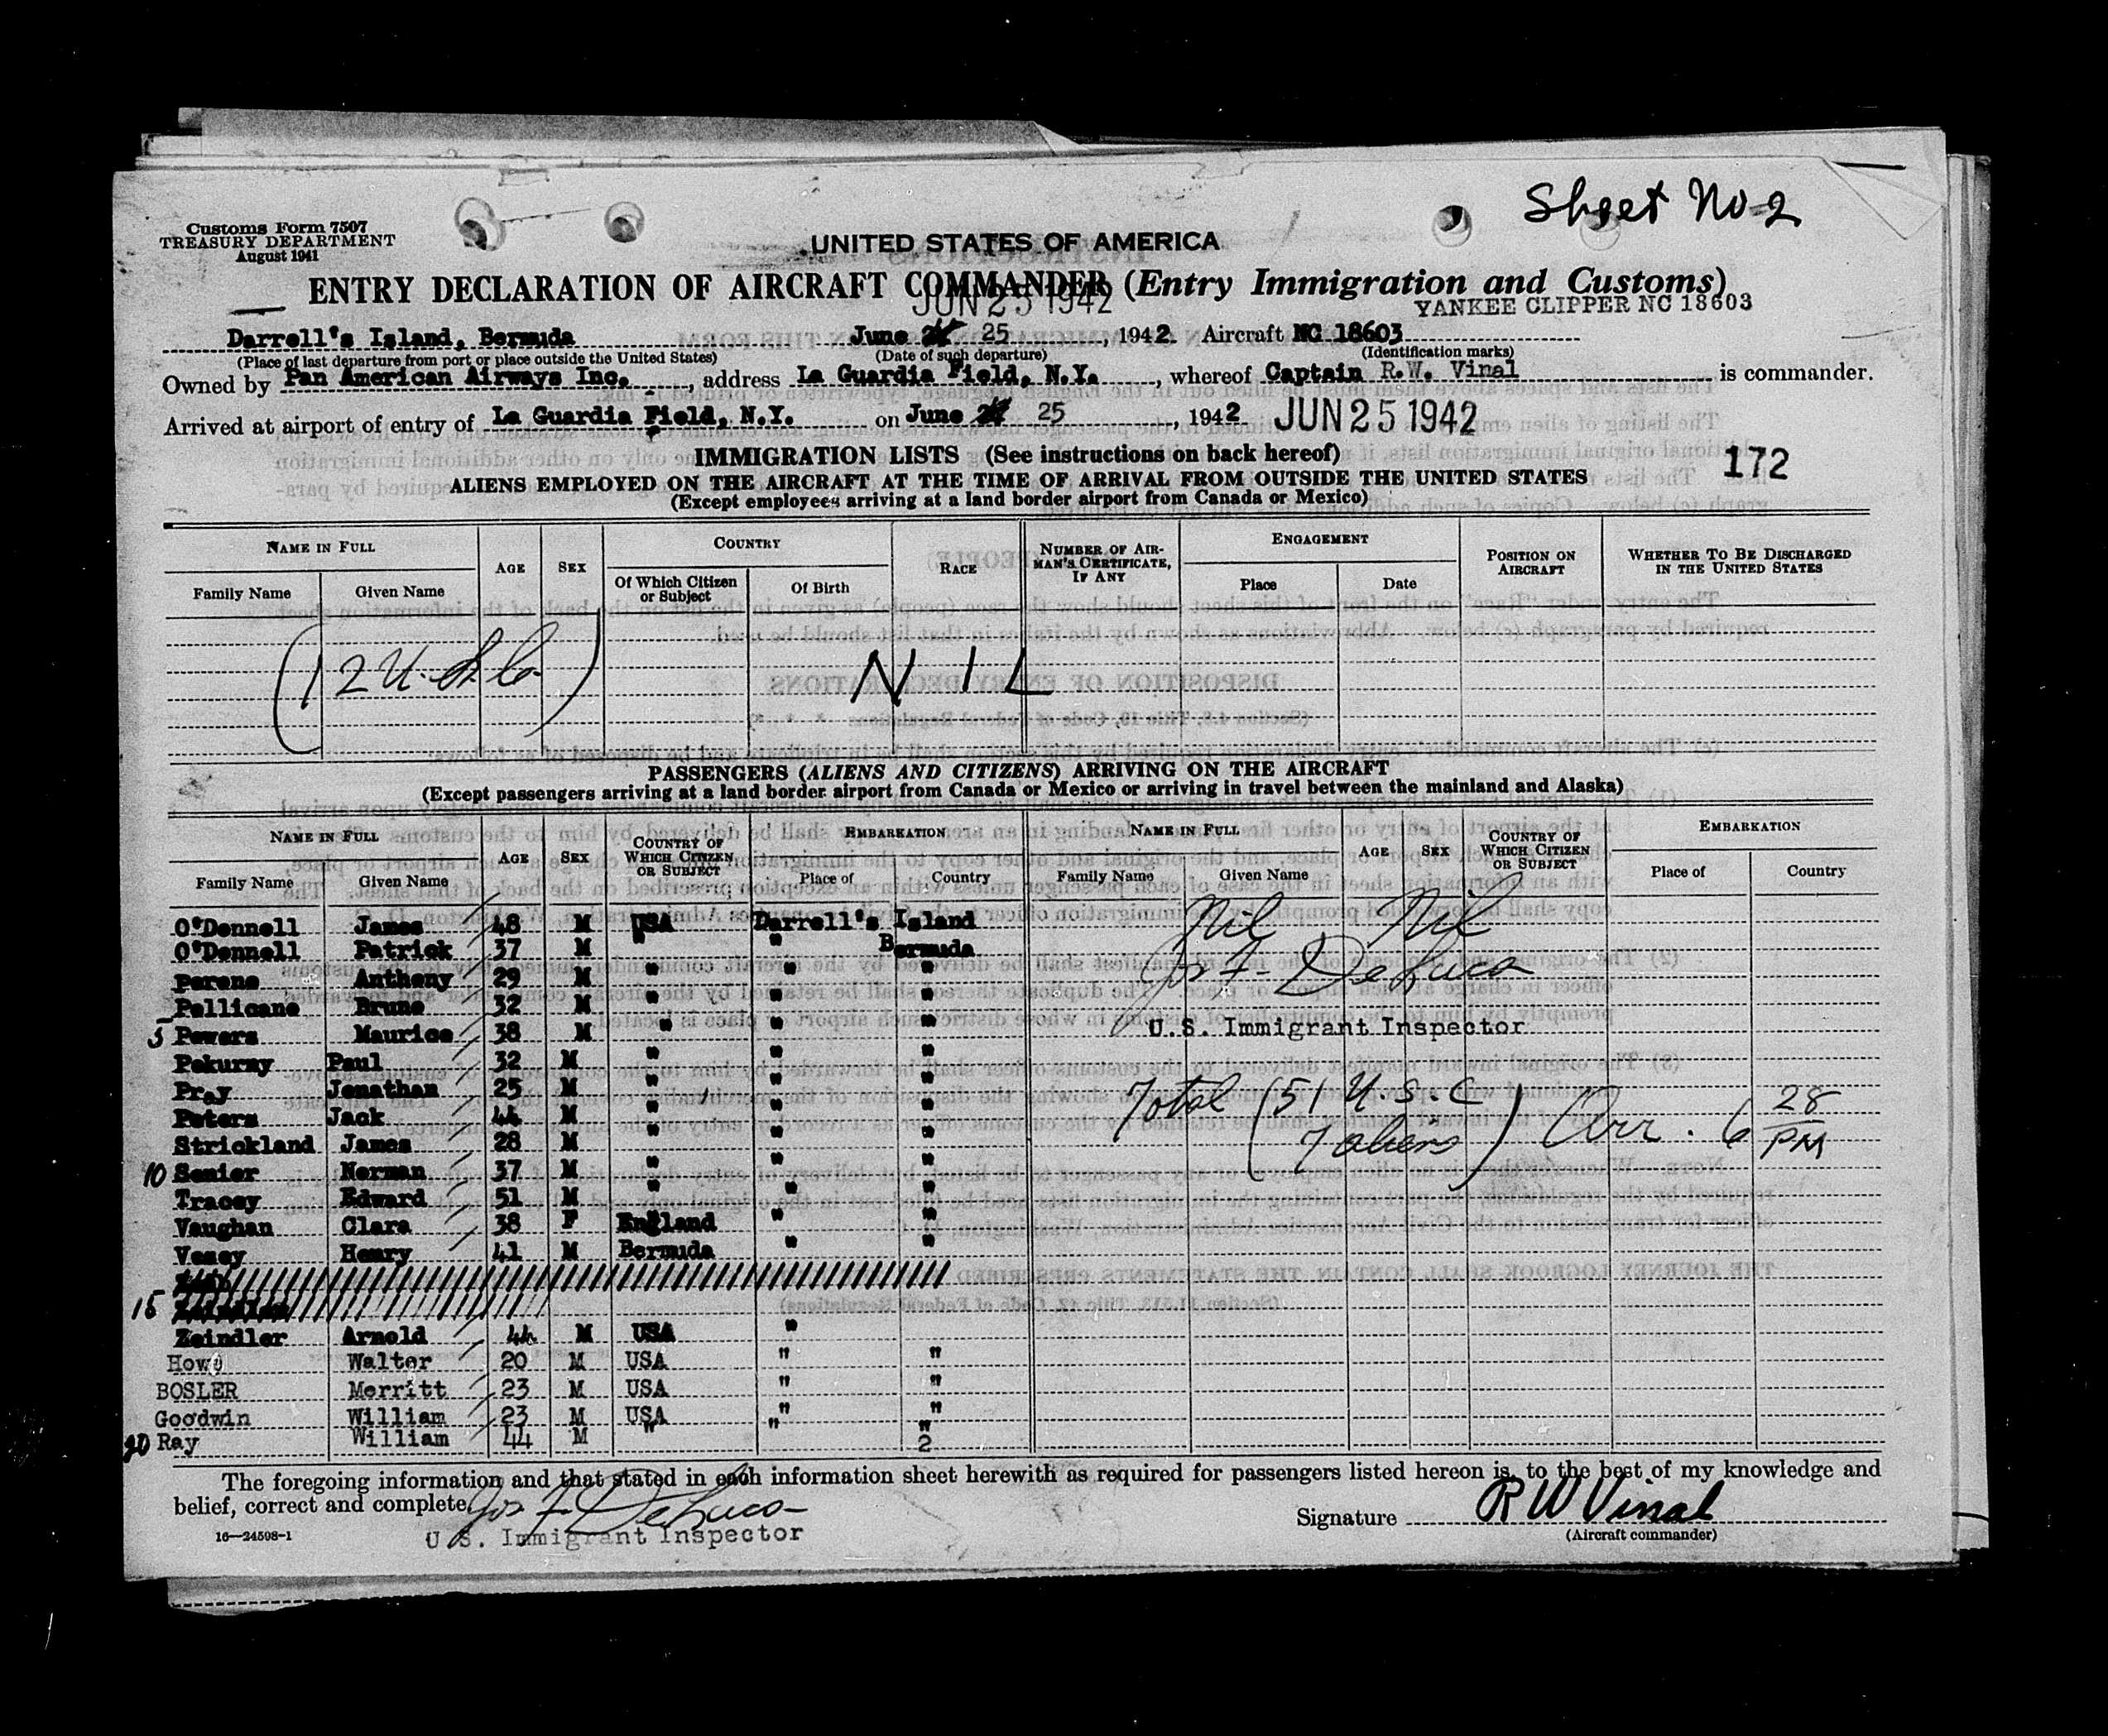 Sheet No 2
Customs Form 7507
TREASURY DEPARTMENT
August 1941
UNITED STATES OF AMERICA
ENTRY DECLARATION OF AIRCRAFT COMMANDER (Entry Immigration and Customs)
JUN 25 1942
YANKEE CLIPPER NC 18603
Darrell's Island, Bermuda June 25, 1942. Aircraft NC 18603
(Place of last departure from port or place outside the United States) (Date of such departure) (Identification marks)
Owned by Pan American Airways Inc., address La Guardia Field, N.Y., whereof Captain R.W. Vinal is commander.
Arrived at airport of entry of La Guardia Field, N.Y. on June 25, 1942 JUN 25 1942
IMMIGRATION LISTS (See instructions on back hereof)
172
ALIENS EMPLOYED ON THE AIRCRAFT AT THE TIME OF ARRIVAL FROM OUTSIDE THE UNITED STATES
(Except employees arriving at a land border airport from Canada or Mexico)
NAME IN FULL AGE SEX COUNTRY RACE NUMBER OF AIRMAN'S CERTIFICATE, IF ANY ENGAGEMENT POSITION ON AIRCRAFT WHETHER TO BE DISCHARGED IN THE UNITED STATES
Family Name Given Name Of Which Citizen or Subject Of Birth Place Date
NIL
PASSENGERS (ALIENS AND CITIZENS) ARRIVING ON THE AIRCRAFT
(Except passengers arriving at a land border airport from Canada or Mexico or arriving in travel between the mainland and Alaska)
NAME IN FULL AGE SEX COUNTRY OF WHICH CITIZEN OR SUBJECT EMBARKATION NAME IN FULL AGE SEX COUNTRY OF WHICH CITIZEN OR SUBJECT EMBARKATION
Family Name Given Name Place of Country Family Name Given Name Place of Country
O'Donnell James 48 M USA Darrell's Island Nil Nil
O'Donnell Patrick 37 M " " Bermuda
Perone Anthony 29 M " " " Jos F. DeLuca
Pellicane Bruno 32 M " " "
5 Powers Maurice 38 M " " " U.S. Immigrant Inspector
Pokurny Paul 32 M " " "
Pray Jonathan 25 M " " " Total (51 U.S.C 28
Peters Jack 44 M " " " 7 aliens) Arr. 6 PM
Strickland James 28 M " " "
10 Senior Norman 37 M " " "
Tracey Edward 51 M " " "
Vaughan Clara 38 F England " "
Vesey Henry 41 M Bermuda " "
15 Zeindler
Zeindler Arnold 44 M USA "
Howe Walter 20 M USA " "
BOSLER Merritt 23 M USA " "
Goodwin William 23 M USA " "
20 Ray William 44 M " " "
2
The foregoing information and that stated in each information sheet herewith as required for passengers listed hereon is, to the best of my knowledge and
belief, correct and complete. Jos F DeLuca
Signature R W Vinal
16—24598-1 U.S. Immigrant Inspector (Aircraft commander)